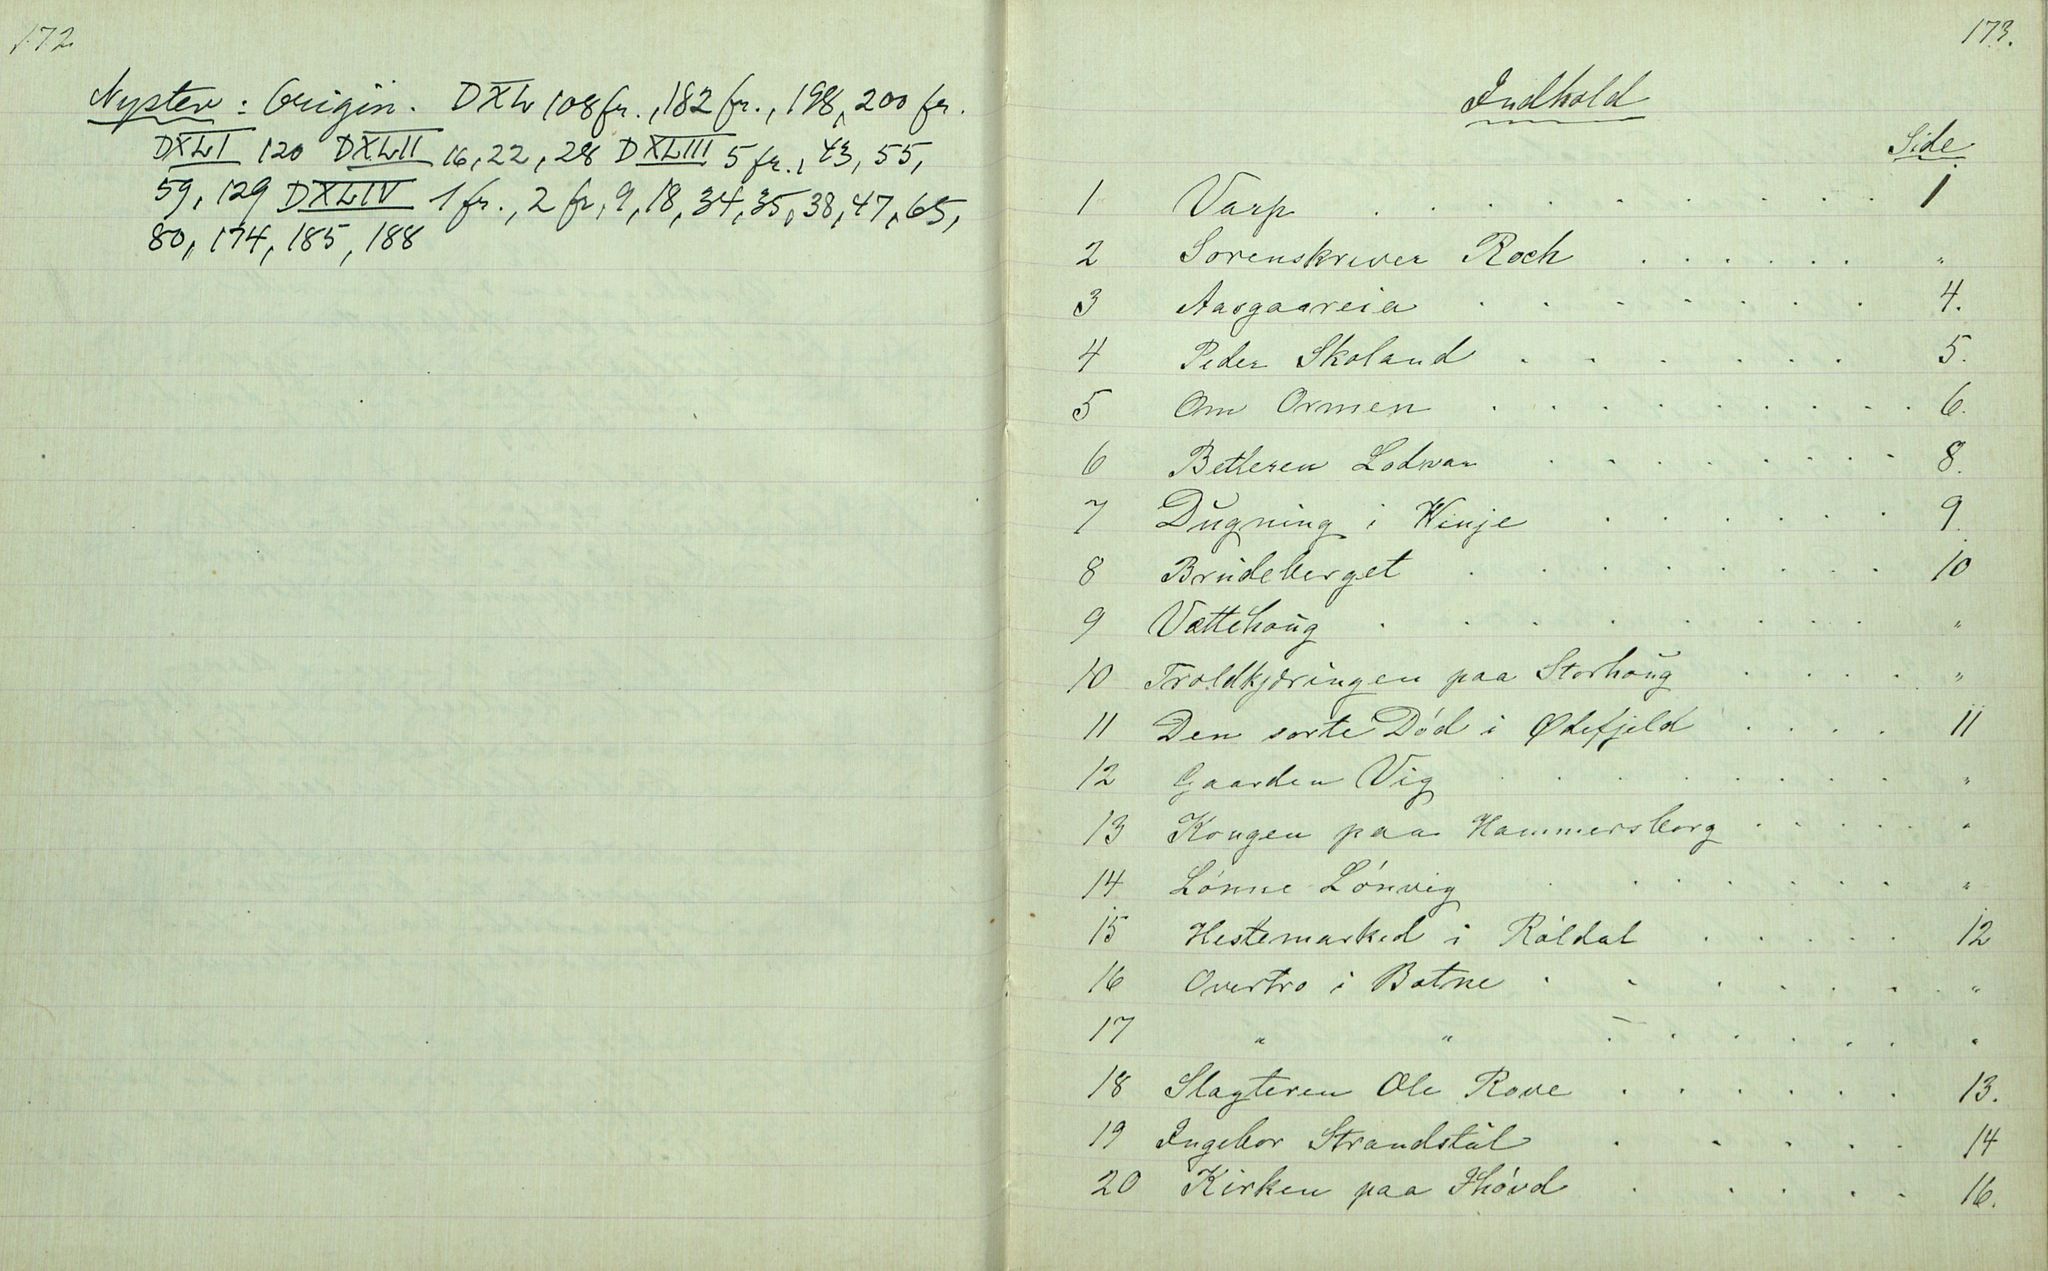 172
Nystev: Origin. DXL 108 fr., 182 fr., 198, 200 fr.
DXLI 120 DXLII 16, 22, 28 DXLIII 5 fr., 43, 55,
59, 129 DXLIV 1 fr., 2 fr, 9, 18, 34, 35, 38, 47, 65,
80, 174, 185, 188
173.
Indhold
Side
1 Varp . . . . . . . . . . 1
2 Sorenskriver Roch . . . . . . "
3 Aasgaareia . . . . . . . . 4.
4 Peder Skoland . . . . . . 5.
5 Om Ormen . . . . . . . . . 6.
6 Betleren Lodvar . . . . . . . 8.
7 Dugning i Winje . . . . . . 9.
8 Brudeberget . . . . . . . . 10
9 Vættehoug . . . . . . . . "
10 Troldkjæringen paa Storhoug . . . . "
11 Den sorte Død i Ødefjeld . . . . 11
12 Gaarden Vig . . . . . . . "
13 Kongen paa Hammersborg . . . . . "
14 Lønne Lønvig . . . . . . . "
15 Hestemarked i Røldal . . . . . 12
16 Overtro i Botne . . . . . . . "
17 " " — . . . . . . "
18 Slagteren Ole Rove . . . . . . 13.
19 Ingebor Strandstål . . . . . 14
20 Kirken paa Høvd . . . . . 16.